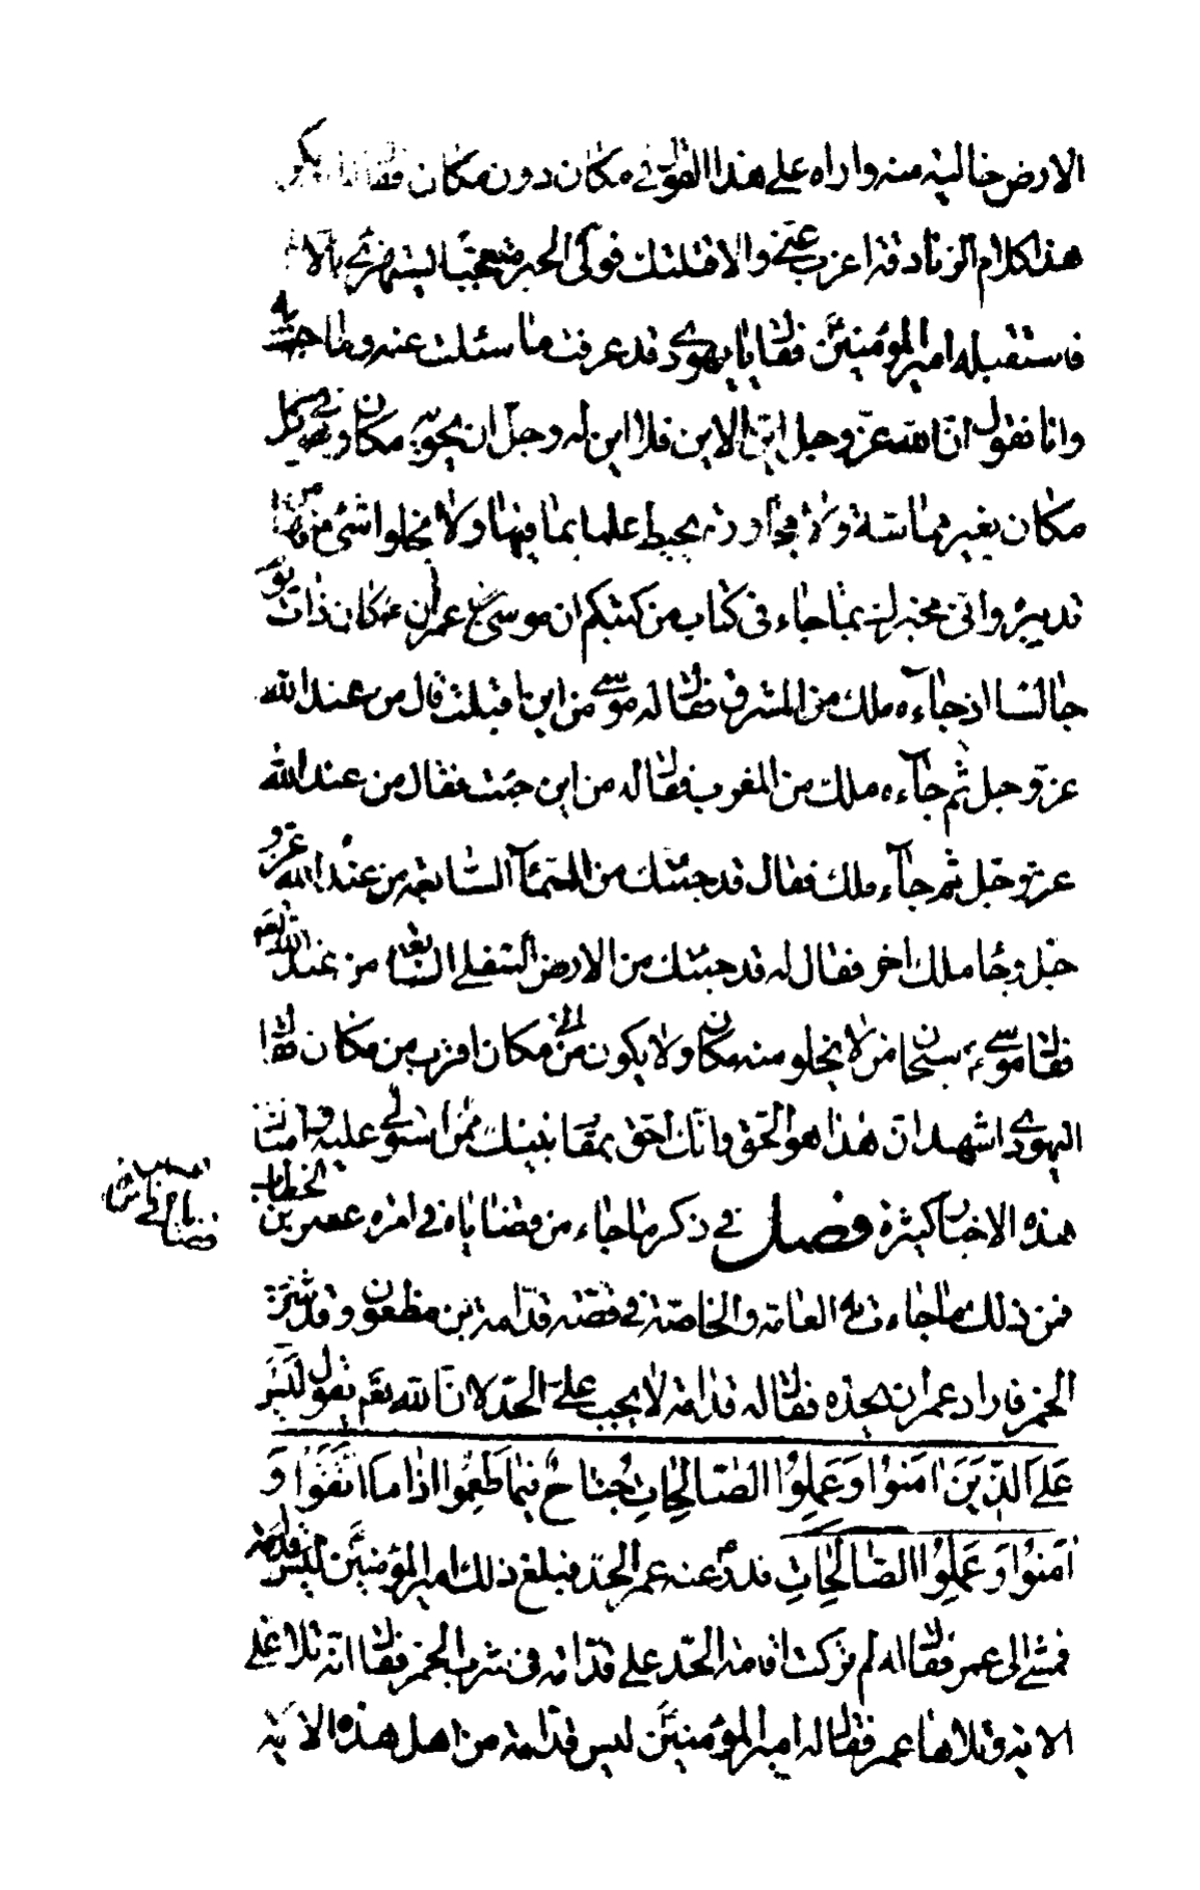 الارض خالية منه واراه على هذا القول في مكان دون مكان فقال ابوبكر
هذا كلام الزنادقة اعزب عني والا قتلتك فولى الحبر متعجبا يستهزئ بالاسلام
فاستقبله امير المؤمنين فقال يا يهودي قد عرفت ما سئلت عنه وما اجبت به
وانا نقول ان الله عزوجل اين الاين فلا اين له وجل ان يحويه مكان وهو في كل
مكان بغير مماسة ولا مجاورة يحيط علما بما فيها ولا يخلوا شئ منها من
تدبيره واني مخبرك بما جاء في كتاب من كتبكم ان موسى بن عمران كان ذات يوم
جالسا اذ جاءه ملك من المشرق فقال له موسى من اين اقبلت قال من عند الله
عزوجل ثم جاءه ملك من المغرب فقال له من اين جئت فقال من عند الله
عزوجل ثم جاءه ملك فقال قد جئتك من السماء السابعة من عند الله عزو
جل وجاء ملك اخر فقال له قد جئتك من الارض السفلى السابعة من عند الله تعم
فقال موسى ع سبحان من لا يخلو منه مكان ولا يكون من الى مكان اقرب من مكان فقال
اليهودي اشهد ان هذا هو الحق وانك احق بمقام نبيك ممن استولى عليه وامثال
هذه الاخبار كثيرة فصل في ذكر ما جاء من قضاياه في امره عمر بن الخطاب
فمن ذلك ما جاءت به العامة والخاصة في قصة قدامة بن مظعون وقد شرب
الخمر فاراد عمر ان يحده فقال له قدامة لا يجب علي الحد لان الله تعم يقول لَيْسَ
عَلَى الَّذِينَ اٰمَنُوا وَعَمِلُوا الصَّالِحَاتِ جُنَاحٌ فِيمَا طَعِمُوا اِذَا مَا اتَّقَوْا وَ
اٰمَنُوا وَعَمِلُوا الصَّالِحَاتِ فدرء عنه عمر الحد فبلغ ذلك امير المؤمنين ليس قدامة
فمشى الى عمر فقال له لم تركت اقامة الحد على قدامة في شرب الخمر فقال انه تلا علي
الاية وتلاها عمر فقال له امير المؤمنين ليس قدامة من اهل هذه الاية